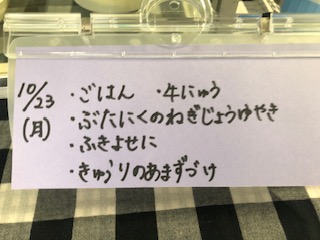 10/23 ・ごはん ・牛にゅう
(月) ・ぶたにくのねぎじょうゆやき
・ふきよせに
・きゅうりのあまずづけ